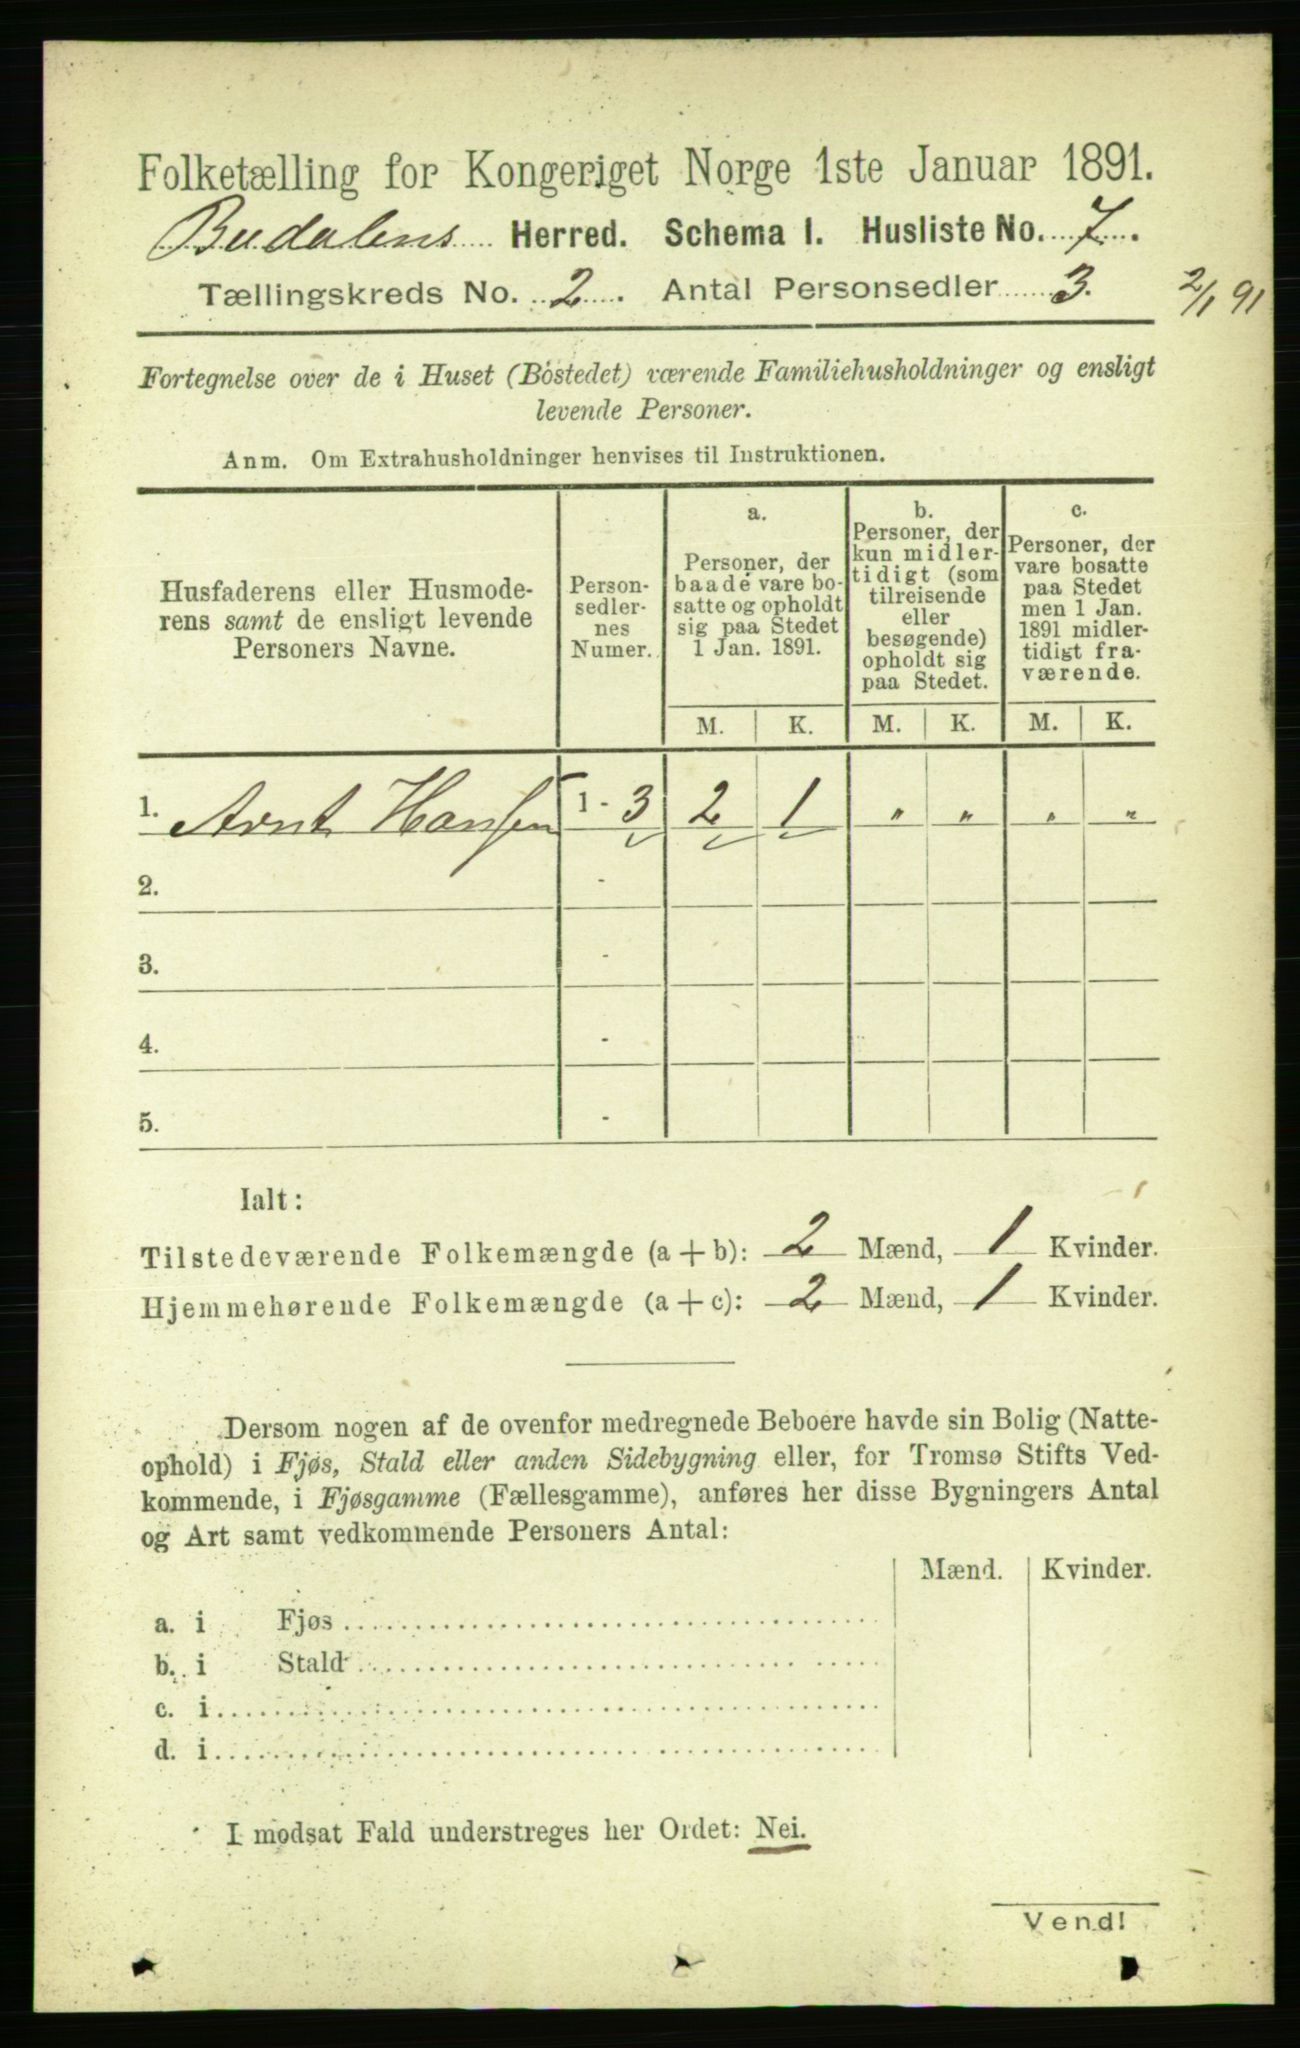 Folketælling for Kongeriget Norge 1ste Januar 1891.
Budalens Herred. Schema 1. Husliste No. 7.
Tællingskreds No. 2. Antal Personsedler 3. 2/1 91
Fortegnelse over de i Huset (Bostedet) værende Familiehusholdninger og ensligt
levende Personer.
Anm. Om Extrahusholdninger henvises til Instruktionen.
Husfaderens eller Husmode-
rens samt de ensligt levende
Personers Navne.
Person-
sedler-
nes
Numer.
a.
Personer, der
baade vare bo-
satte og opholdt
sig paa Stedet
1 Jan. 1891.
b.
Personer, der
kun midler-
tidigt (som
tilreisende
eller
besøgende)
opholdt sig
paa Stedet.
c.
Personer, der
vare bosatte
paa Stedet
men 1 Jan.
1891 midler-
tidigt fra-
værende.
M. K. M. K. M. K.
1. Arnt Hansen 1 - 3 2 1 " " " "
2. -
3. -
4. -
5. -
Ialt:
Tilstedeværende Folkemængde (a + b): 2 Mænd, 1 Kvinder.
Hjemmehørende Folkemængde (a + c): 2 Mænd, 1 Kvinder.
Dersom nogen af de ovenfor medregnede Beboere havde sin Bolig (Natte-
ophold) i Fjøs, Stald eller anden Sidebygning eller, for Tromsø Stifts Ved-
kommende, i Fjøsgamme (Fællesgamme), anføres her disse Bygningers Antal
og Art samt vedkommende Personers Antal:
Mænd. Kvinder.
a. i Fjøs
b. i Stald
c. i
d. i
I modsat Fald understreges her Ordet: Nei.
Vend!